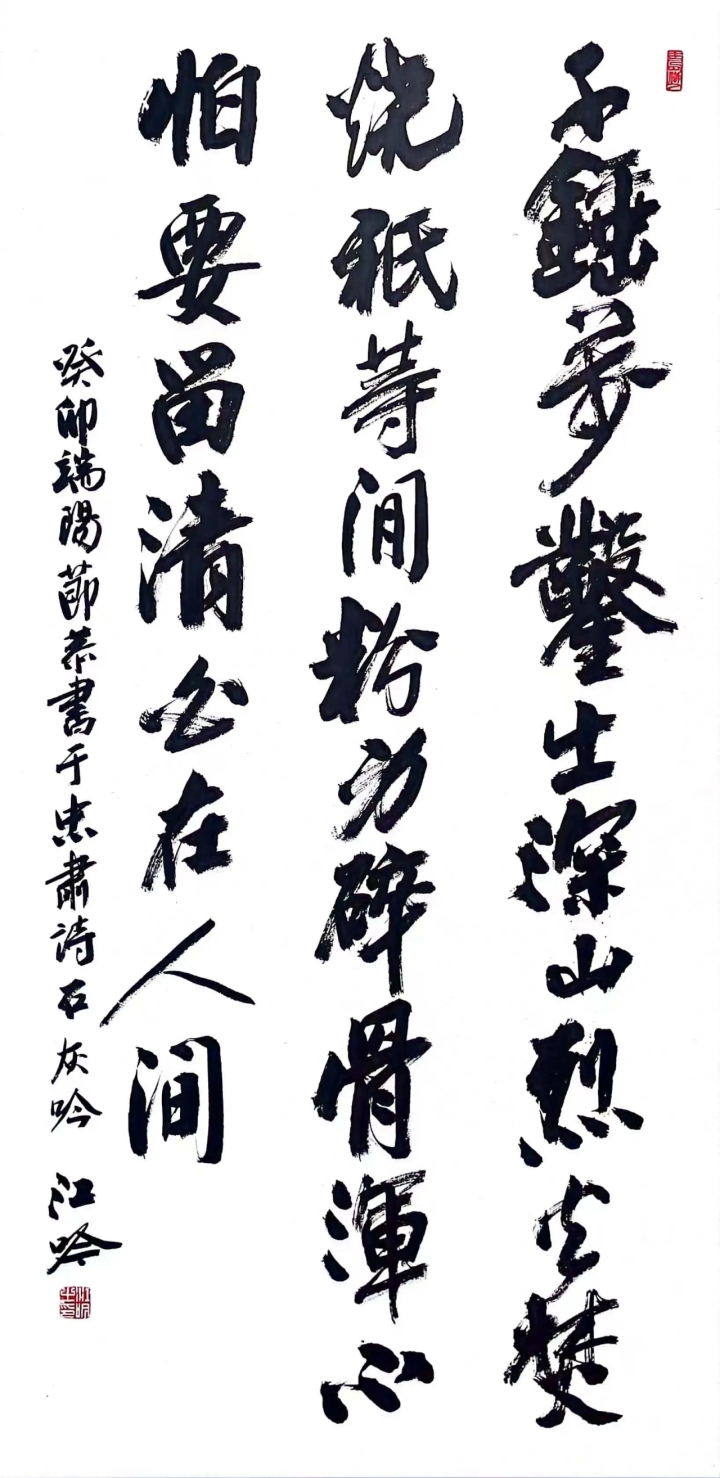 千錘萬鑿出深山烈火焚
燒祇等閒粉身碎骨渾不
怕要留清白在人間
癸卯端陽節恭書于忠肅詩石灰吟 江吟